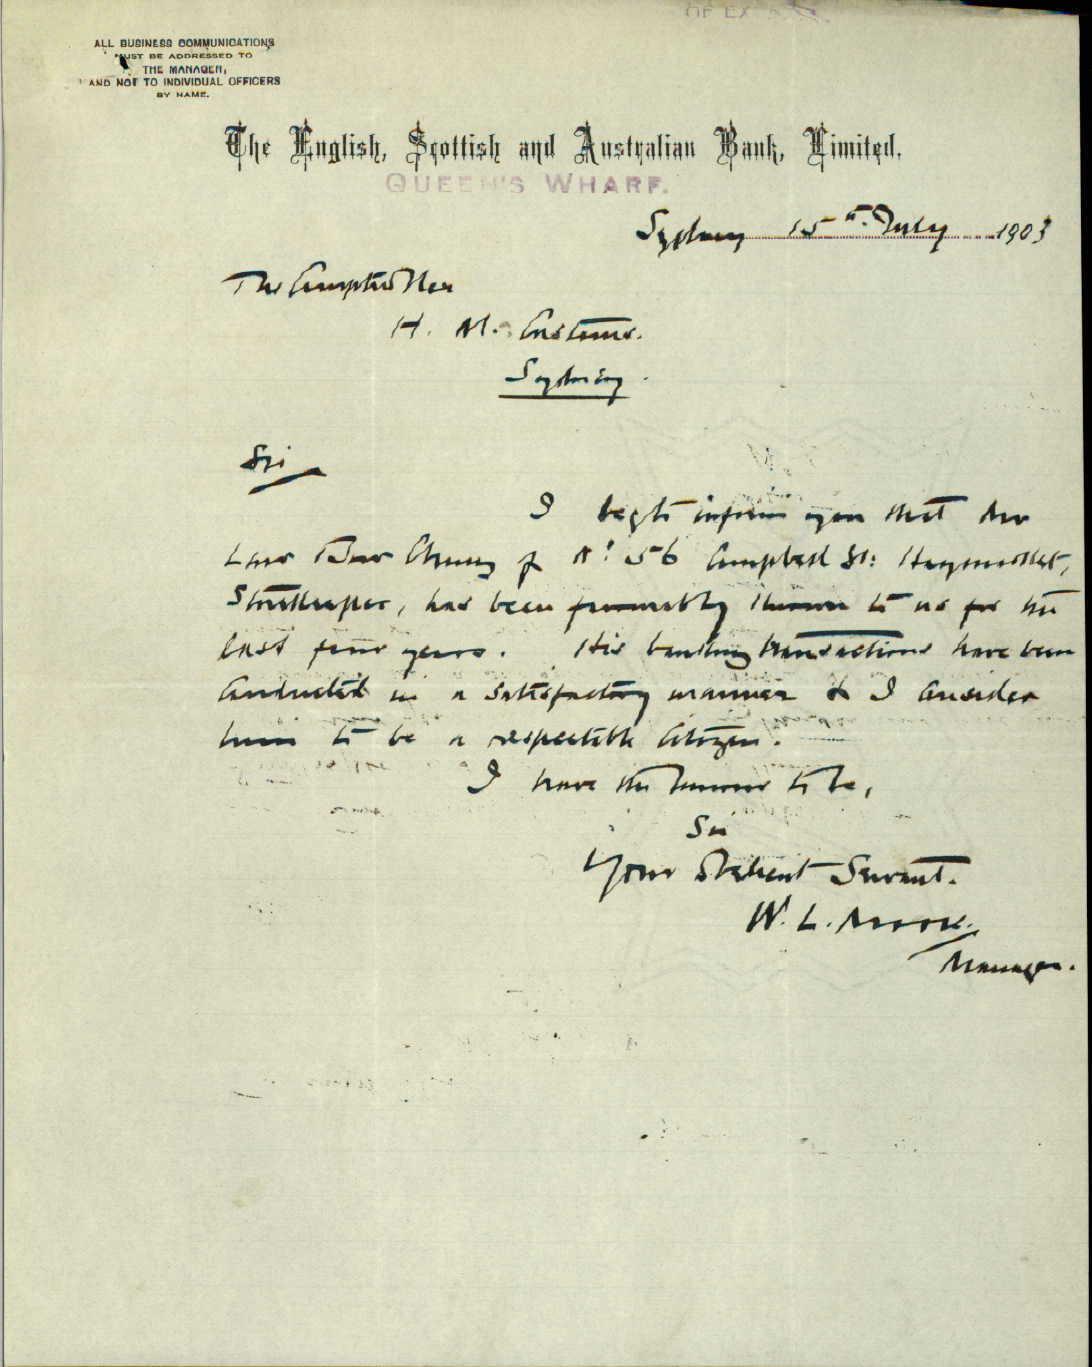 ALL BUSINESS COMMUNICATIONS
MUST BE ADDRESSED TO
THE MANAGER,
AND NOT TO INDIVIDUAL OFFICERS
BY NAME.
The English, Scottish and Australian Bank, Limited.
QUEEN'S WHARF.
Sydney 15th July 1903
The Comptroller
H. M. Customs.
Sydney.
Sir
I beg to inform you that Mr
Chung of No 56 Campbell St: Haymarket,
Storekeeper, has been favourably known to us for the
last four years. His banking transactions have been
conducted in a satisfactory manner & I consider
him to be a respectable citizen.
I have the honour to be,
Sir
Your Obedient Servant.
W. L. Moore.
Manager.